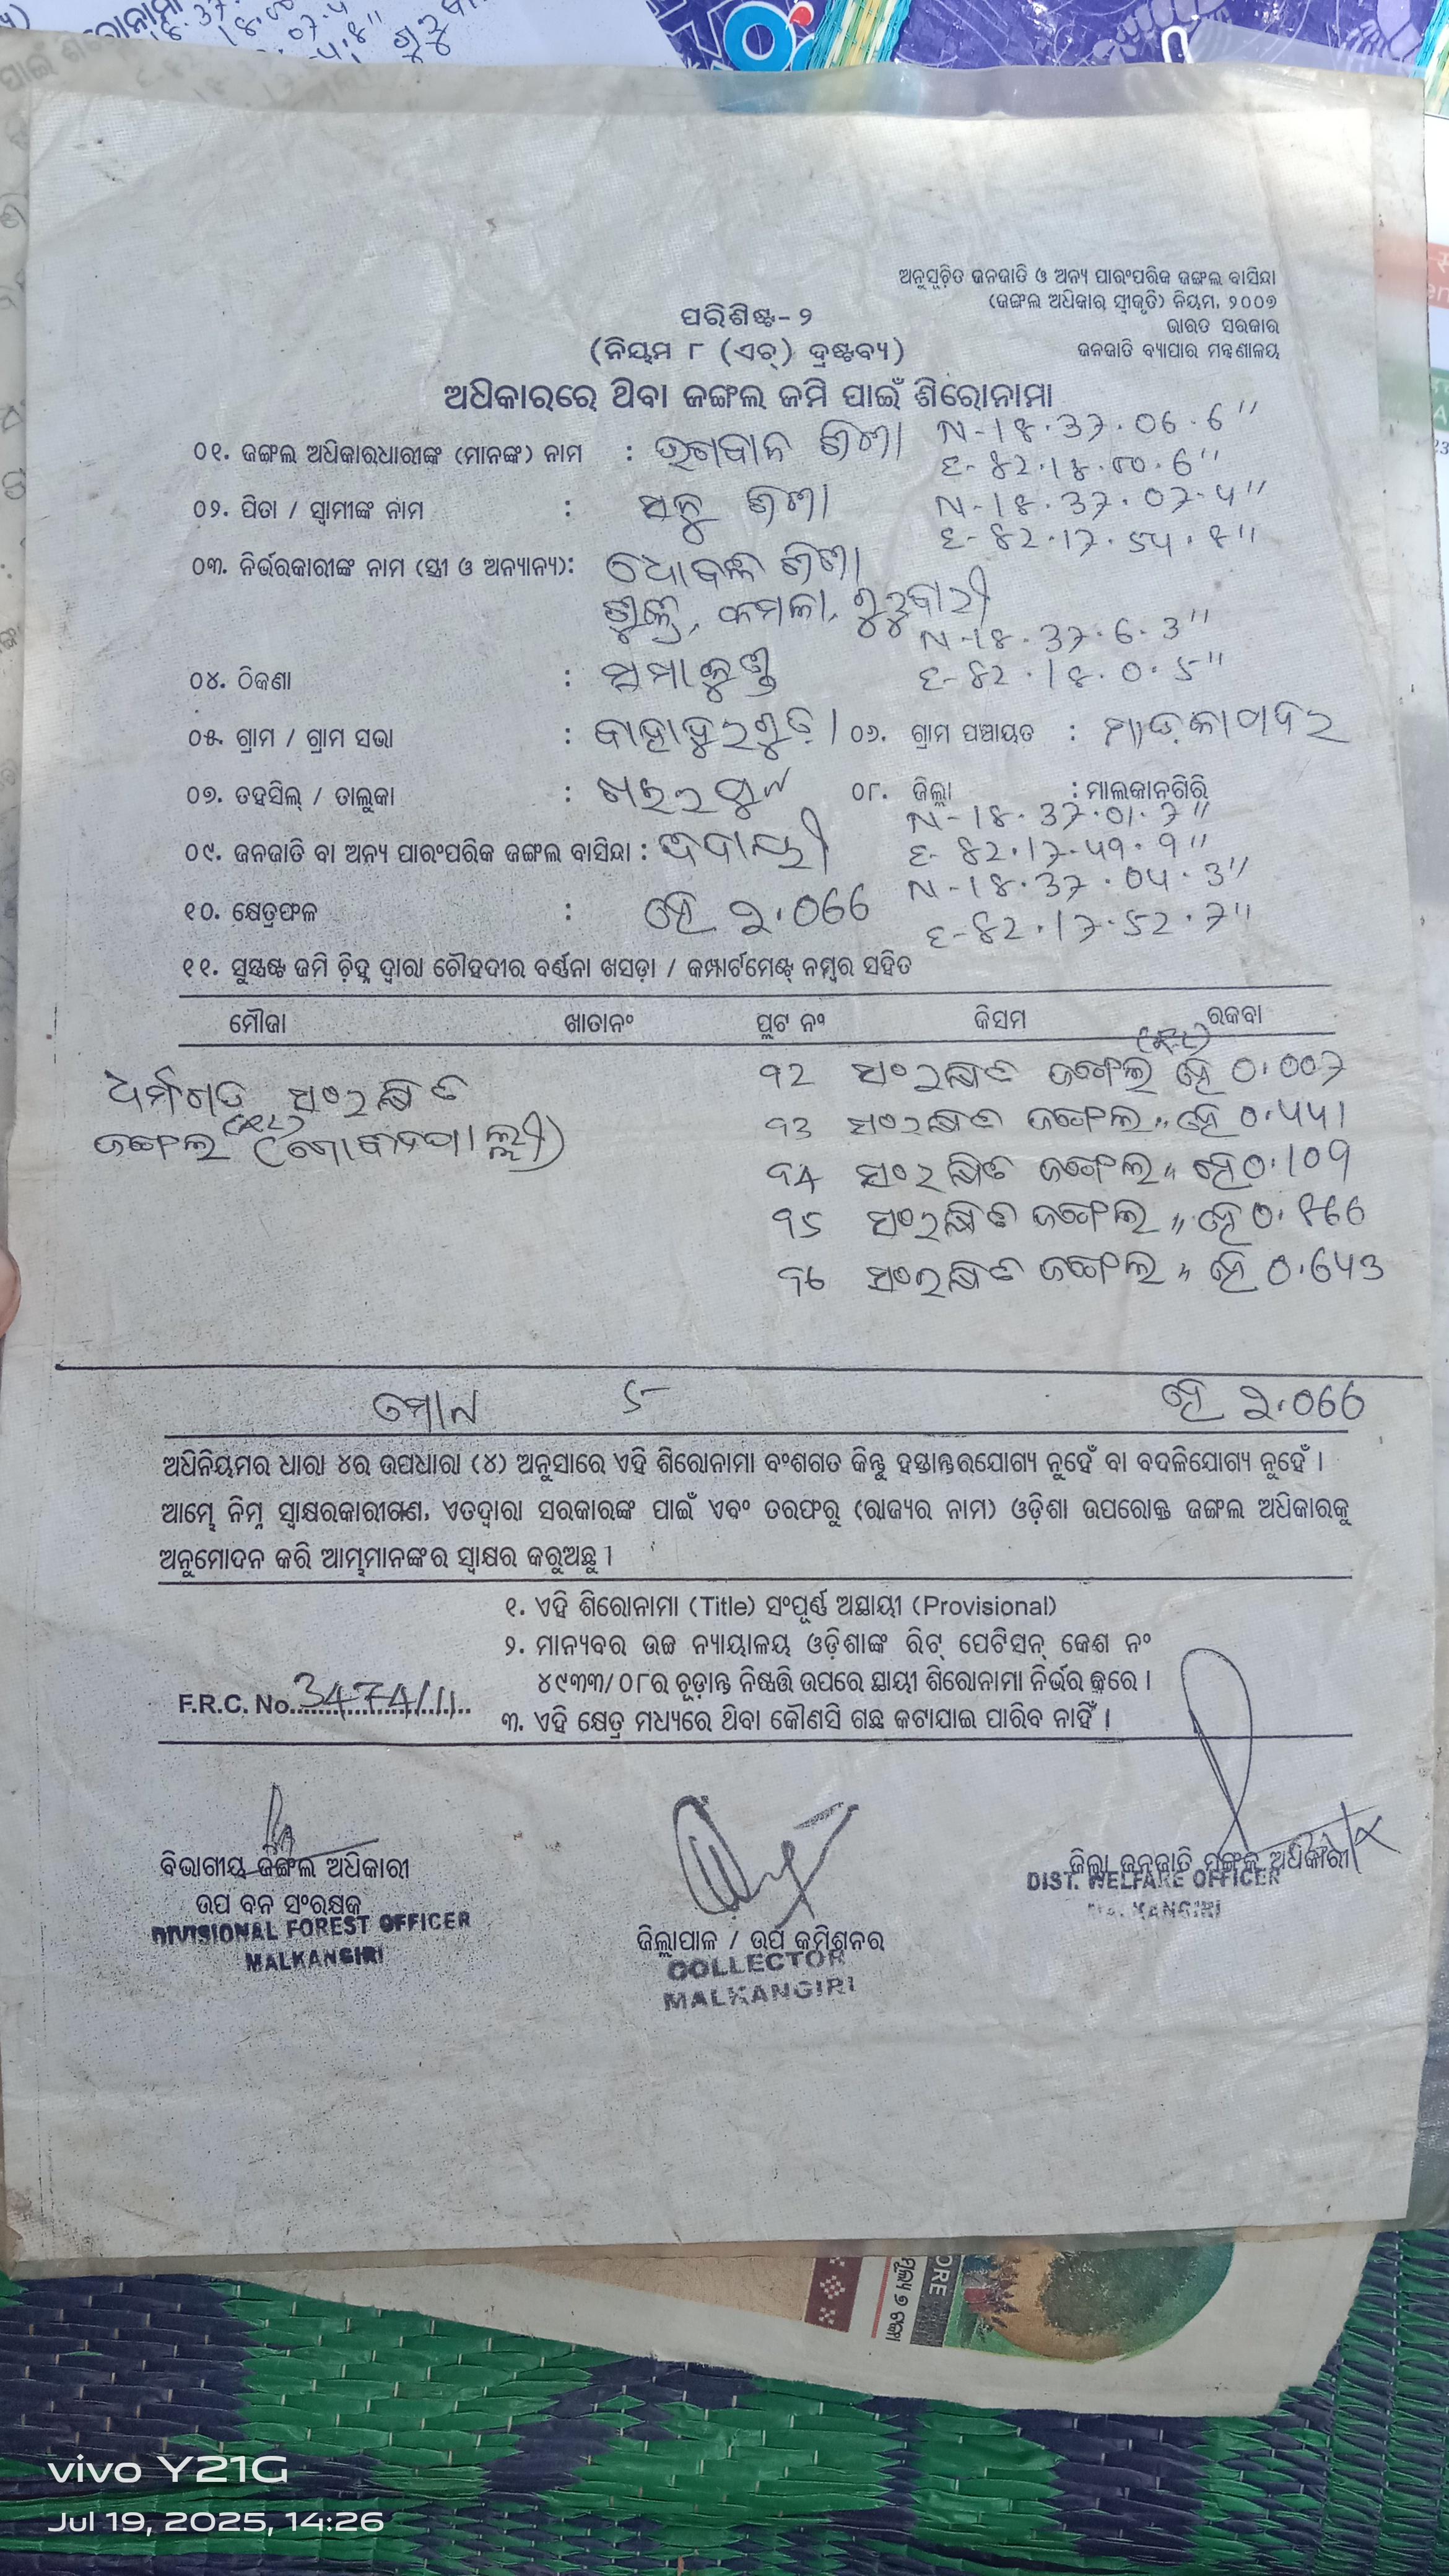 ଅନୁସୂଚିତ ଜନଜାତି ଓ ଅନ୍ୟ ପାରଂପରିକ ଜଙ୍ଗଲ ବାସିନ୍ଦା
(ଜଙ୍ଗଲ ଅଧିକାର ସ୍ୱୀକୃତି) ନିୟମ, ୨୦୦୭
ଭାରତ ସରକାର
ଜନଜାତି ବ୍ୟାପାର ମନ୍ତ୍ରଣାଳୟ
ପରିଶିଷ୍ଟ-୨
(ନିୟମ ୮ (ଏଚ୍) ଦ୍ରଷ୍ଟବ୍ୟ)
ଅଧିକାରରେ ଥିବା ଜଙ୍ଗଲ ଜମି ପାଇଁ ଶିରୋନାମା
୦୧. ଜଙ୍ଗଲ ଅଧିକାରଧାରୀଙ୍କ (ମାନଙ୍କ) ନାମ : ଭଗବାନ N-18.37.06.6"
୦୨. ପିତା / ସ୍ୱାମୀଙ୍କ ନାମ :
N-18.37.07.4"
E-82.17.54.8"
୦୩. ନିର୍ଭରକାରୀଙ୍କ ନାମ (ସ୍ତ୍ରୀ ଓ ଅନ୍ୟାନ୍ୟ):
କମଳା, ଗୁରୁବାରୀ
N-18.37.6.3"
୦୪. ଠିକଣା : E-82.18.0.5"
୦୫. ଗ୍ରାମ / ଗ୍ରାମ ସଭା : ୦୬. ଗ୍ରାମ ପଞ୍ଚାୟତ :
୦୭. ତହସିଲ୍ / ତାଲୁକା : ଖଇରପୁଟ ୦୮. ଜିଲ୍ଲା : ମାଲକାନଗିରି
N-18.37.01.7"
୦୯. ଜନଜାତି ବା ଅନ୍ୟ ପାରଂପରିକ ଜଙ୍ଗଲ ବାସିନ୍ଦା : E-82.17.49.9"
N-18.37.04.3"
୧୦. କ୍ଷେତ୍ରଫଳ : ହେ ୨.066 E-82.17.52.7"
୧୧. ସୁସ୍ପଷ୍ଟ ଜମି ଚିହ୍ନ ଦ୍ୱାରା ଚୌହଦୀର ବର୍ଣ୍ଣନା ଖସଡ଼ା / କମ୍ପାର୍ଟମେଣ୍ଟ୍ ନମ୍ବର ସହିତ
ମୌଜା ଖାତାନଂ ପ୍ଲଟ ନଂ କିସମ ରକବା
ସଂରକ୍ଷିତ 92 ସଂରକ୍ଷିତ ଜଙ୍ଗଲ ହେ 0.007
ଜଙ୍ଗଲ 93 ସଂରକ୍ଷିତ ଜଙ୍ଗଲ " ହେ 0.441
94 ସଂରକ୍ଷିତ ଜଙ୍ଗଲ " ହେ 0.109
95 ସଂରକ୍ଷିତ ଜଙ୍ଗଲ " ହେ 0.866
96 ସଂରକ୍ଷିତ ଜଙ୍ଗଲ " ହେ 0.643
ମୋଟ 5 ହେ ୨.066
ଅଧିନିୟମର ଧାରା ୪ର ଉପଧାରା (୪) ଅନୁସାରେ ଏହି ଶିରୋନାମା ବଂଶଗତ କିନ୍ତୁ ହସ୍ତାନ୍ତରଯୋଗ୍ୟ ନୁହେଁ ବା ବଦଳିଯୋଗ୍ୟ ନୁହେଁ ।
ଆମ୍ଭେ ନିମ୍ନ ସ୍ୱାକ୍ଷରକାରୀଗଣ, ଏତଦ୍ୱାରା ସରକାରଙ୍କ ପାଇଁ ଏବଂ ତରଫରୁ (ରାଜ୍ୟର ନାମ) ଓଡ଼ିଶା ଉପରୋକ୍ତ ଜଙ୍ଗଲ ଅଧିକାରକୁ
ଅନୁମୋଦନ କରି ଆମ୍ଭମାନଙ୍କର ସ୍ୱାକ୍ଷର କରୁଅଛୁ ।
୧. ଏହି ଶିରୋନାମା (Title) ସଂପୂର୍ଣ୍ଣ ଅସ୍ଥାୟୀ (Provisional)
୨. ମାନ୍ୟବର ଉଚ୍ଚ ନ୍ୟାୟାଳୟ ଓଡ଼ିଶାଙ୍କ ରିଟ୍ ପେଟିସନ୍ କେଶ ନଂ
୪୯୩୩/୦୮ର ଚୂଡ଼ାନ୍ତ ନିଷ୍ପତ୍ତି ଉପରେ ସ୍ଥାୟୀ ଶିରୋନାମା ନିର୍ଭର କରେ ।
F.R.C. No. 3474/11
୩. ଏହି କ୍ଷେତ୍ର ମଧ୍ୟରେ ଥିବା କୌଣସି ଗଛ କଟାଯାଇ ପାରିବ ନାହିଁ ।
ବିଭାଗୀୟ ଜଙ୍ଗଲ ଅଧିକାରୀ
ଉପ ବନ ସଂରକ୍ଷକ
DIVISIONAL FOREST OFFICER
MALKANGIRI
ଜିଲ୍ଲାପାଳ / ଉପ କମିଶନର
COLLECTOR
MALKANGIRI
ଜିଲ୍ଲା ଜନଜାତି ମଙ୍ଗଳ ଅଧିକାରୀ
DIST. WELFARE OFFICER
MALKANGIRI
vivo Y21G
Jul 19, 2025, 14:26